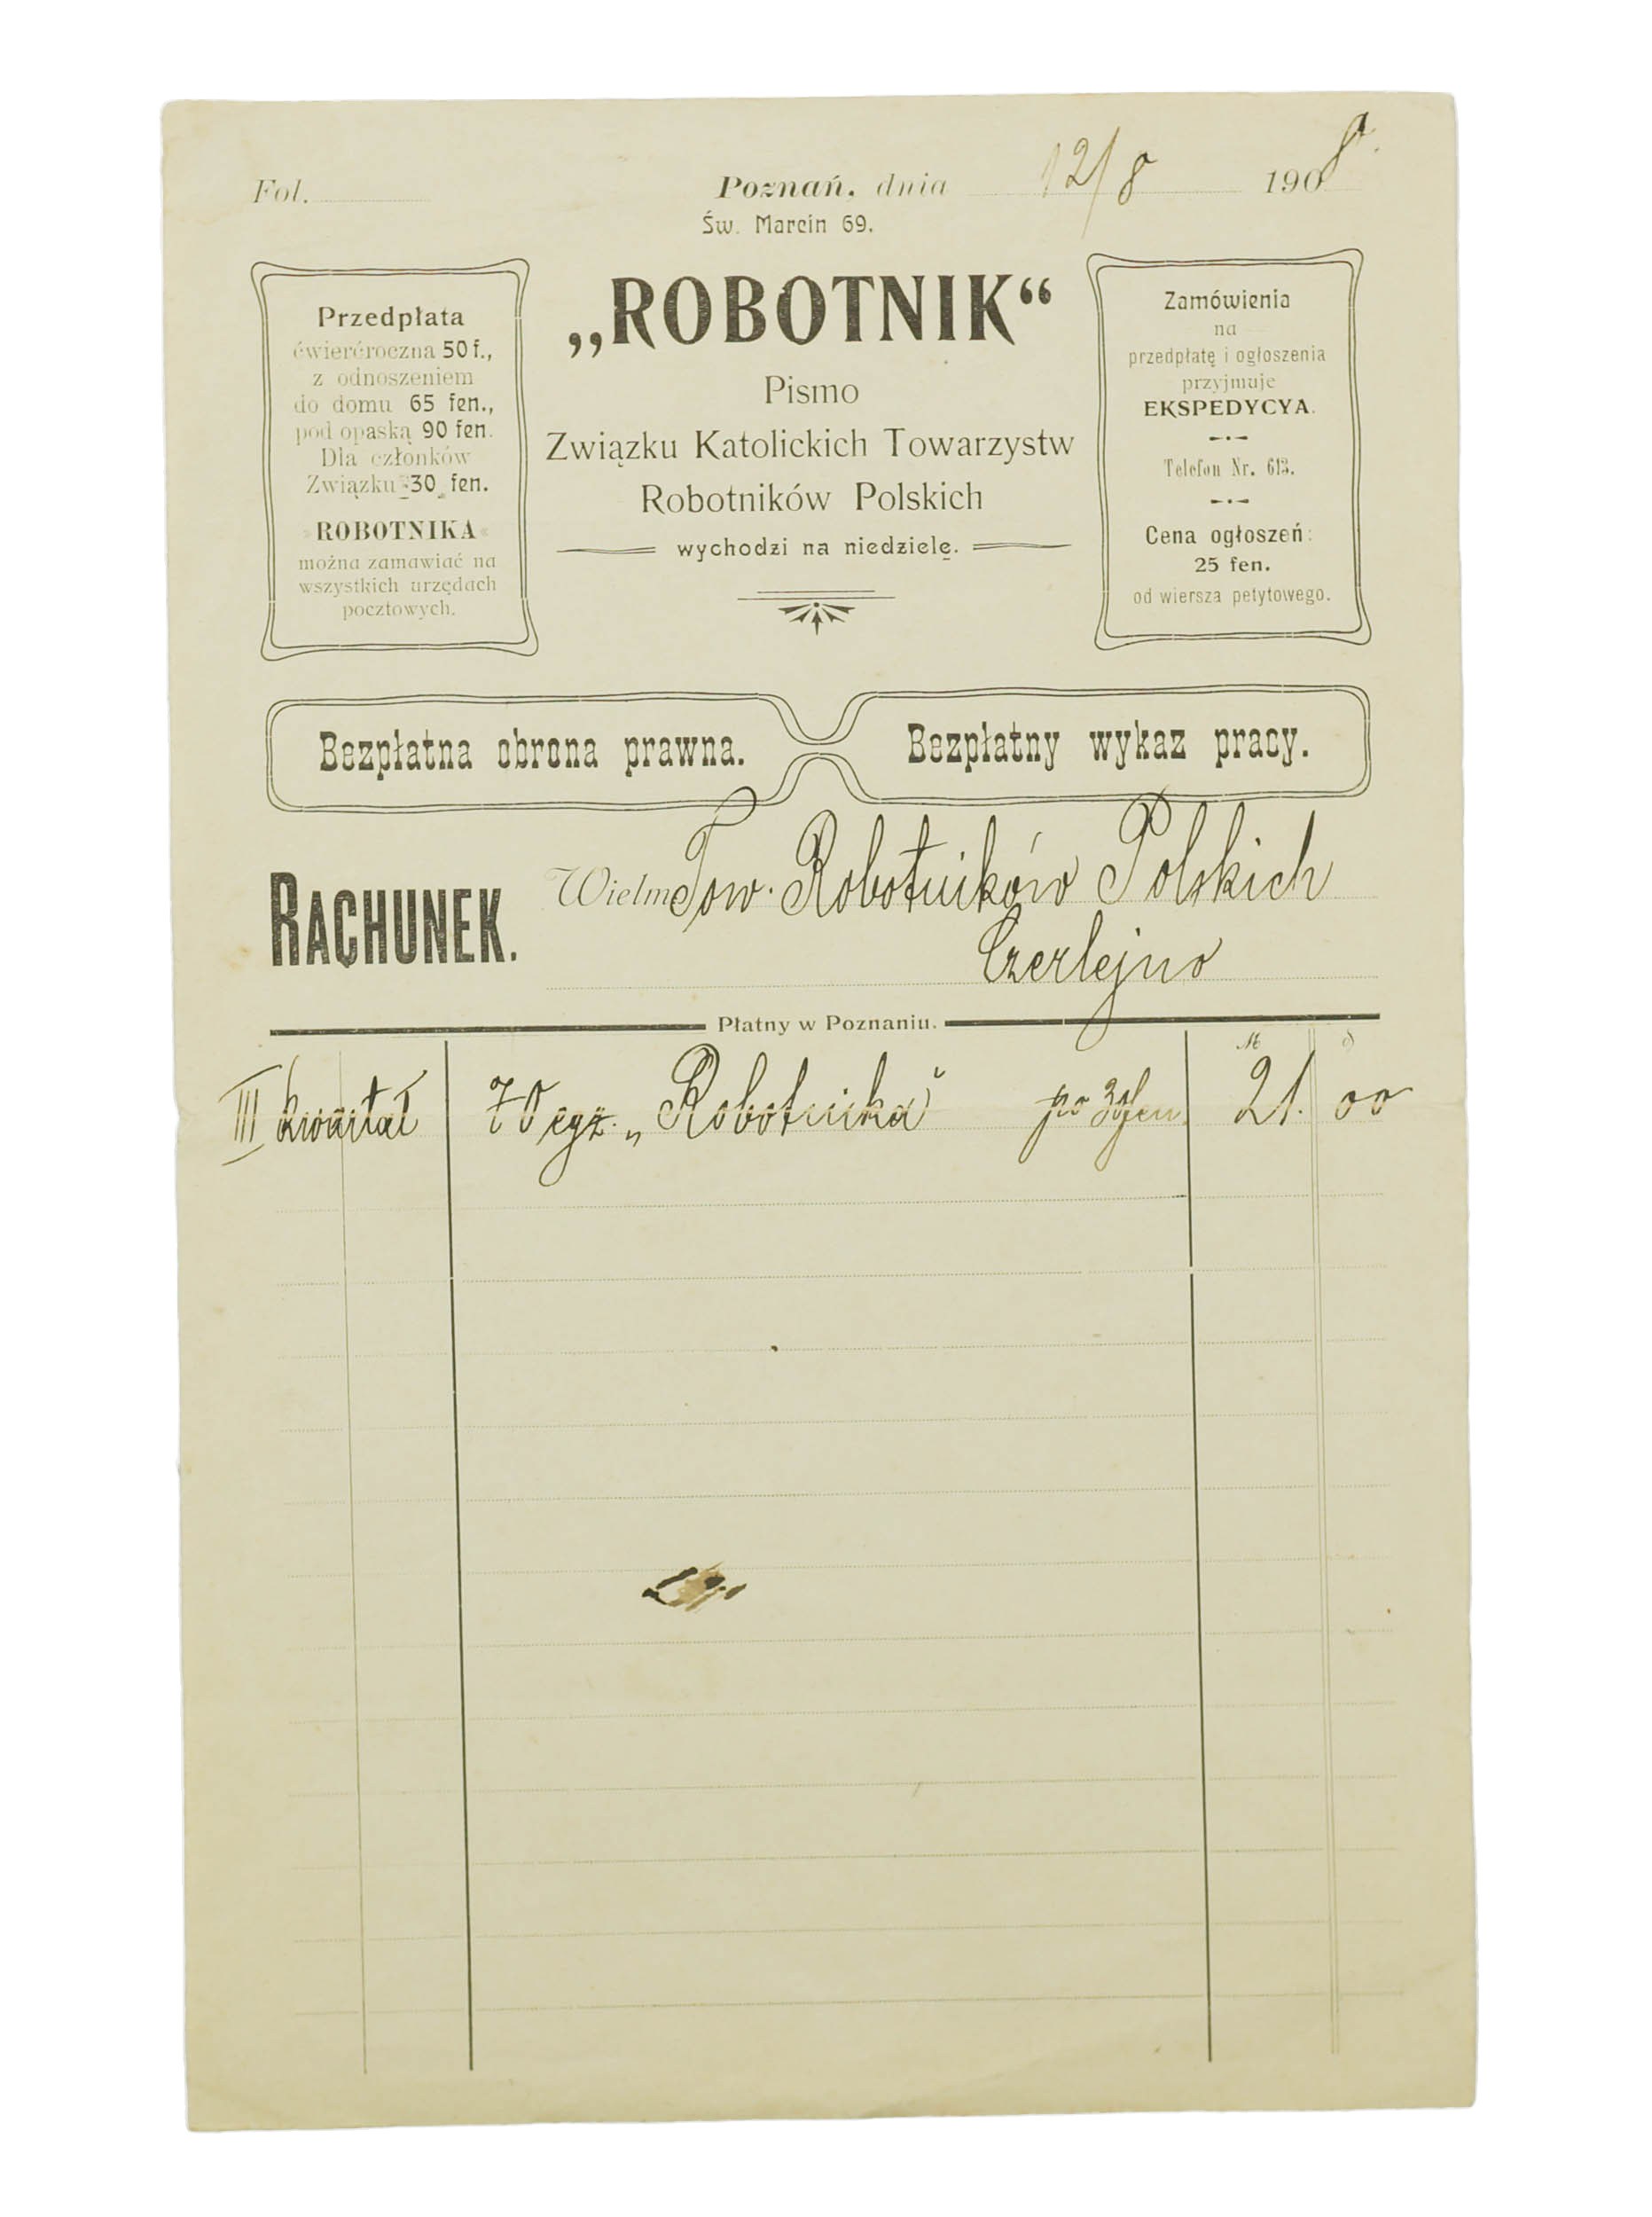 Fol.
Poznań, dnia 12/8 1908.
Św. Marcin 69.
Przedpłata
ćwierćroczna 50 f.,
z odnoszeniem
do domu 65 fen.,
pod opaską 90 fen.
Dla członków
Związku 30 fen.
ROBOTNIKA
można zamawiać na
wszystkich urzędach
pocztowych.
„ROBOTNIK“
Pismo
Związku Katolickich Towarzystw
Robotników Polskich
wychodzi na niedzielę.
Zamówienia
na
przedpłatę i ogłoszenia
przyjmuje
EKSPEDYCYA.
Telefon Nr. 613.
Cena ogłoszeń:
25 fen.
od wiersza petytowego.
Bezpłatna obrona prawna.
Bezpłatny wykaz pracy.
RACHUNEK.
Wielm. Tow. Robotników Polskich
Czerlejno
Płatny w Poznaniu.
M
III kwartał 70 egz. „Robotnika" po 30 fen. 21. 00